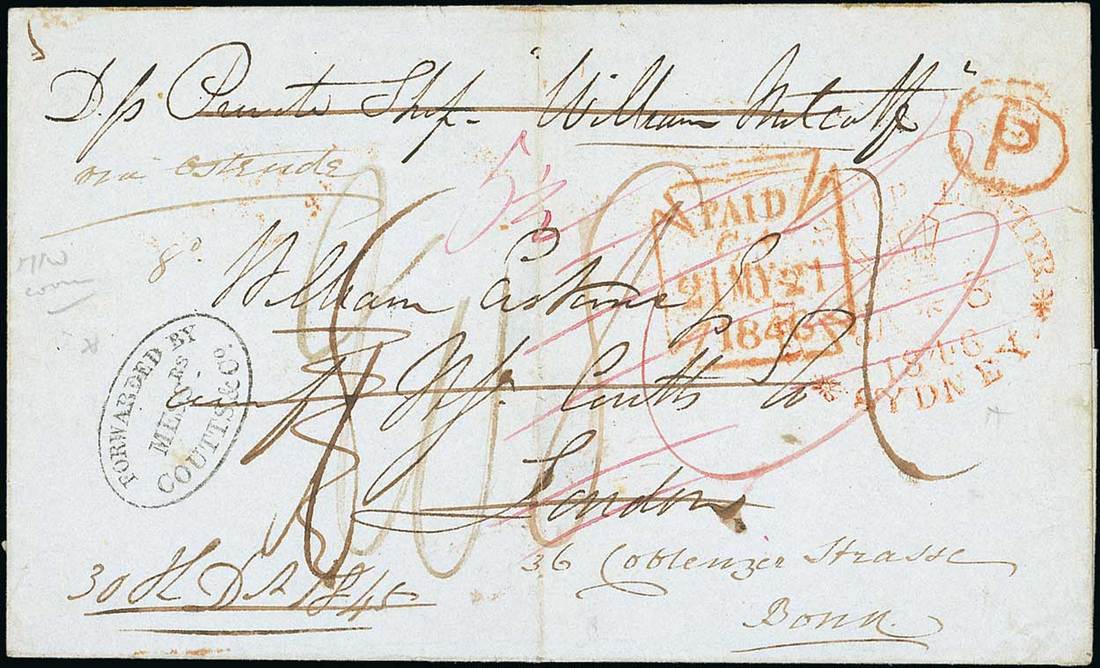 D/p Private Ship "William Metcalfe"
via Ostende
5½
P
PAID
21 MY 21
1846
SHIP LETTER
1846
SYDNEY
William Erskine Esq
Coutts & Co
London
FORWARDED BY
MESSRS
COUTTS & Co.
36 Coblenzer Strasse
Bonn
30th Dr 1845